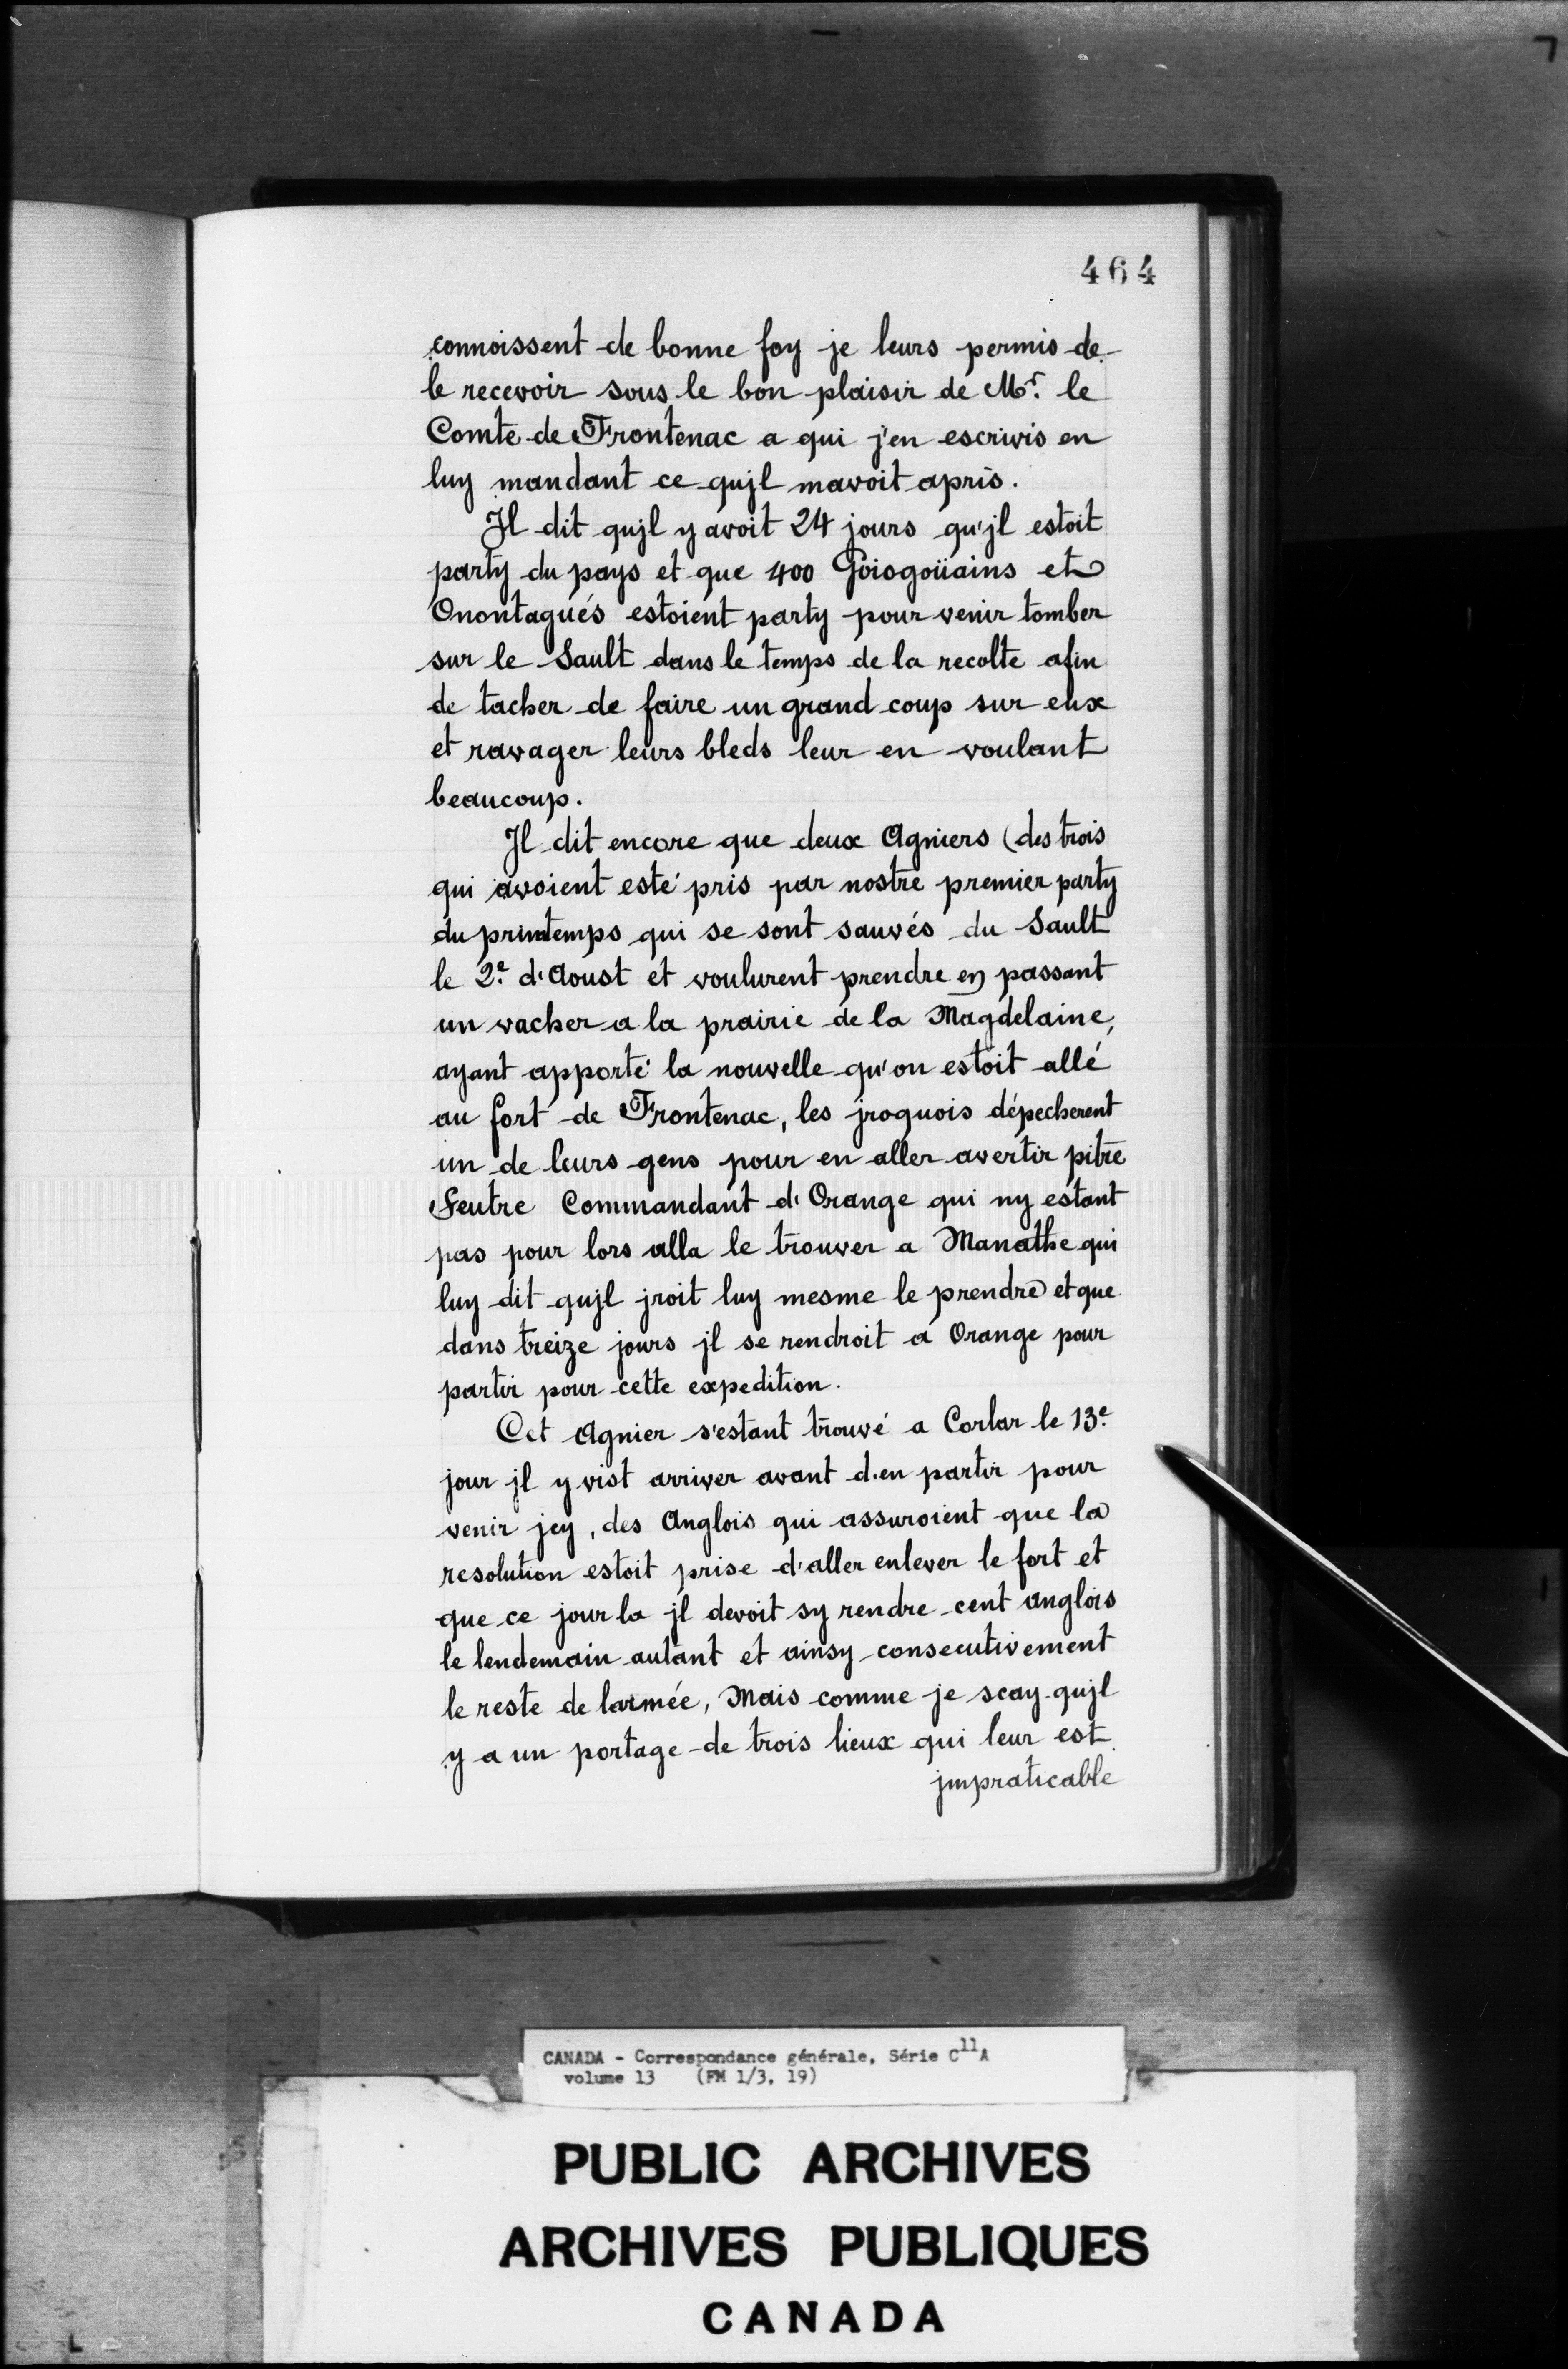 464
connoissent de bonne foy je leurs permis de
le recevoir sous le bon plaisir de Mr. le
Comte de Frontenac a qui j'en escrivis en
luy mandant ce qujl mavoit apris.
Jl dit qujl y avoit 24 jours qu'jl estoit
party du pays et que 400 Goiogoüains et
Onontagués estoient party pour venir tomber
sur le Sault dans le temps de la recolte afin
de tacher de faire un grand coup sur eux
et ravager leurs bleds leur en voulant
beaucoup.
Jl dit encore que deux Agniers (des trois
qui avoient esté pris par nostre premier party
du printemps qui se sont sauvés du Sault
le 2e. d'Aoust et voulurent prendre en passant
un vacher a la prairie de la Magdelaine,
ayant apporté la nouvelle qu'on estoit allé
au fort de Frontenac, les jroquois dépecherent
un de leurs gens pour en aller avertir pitre
Seutre Commandant d'Orange qui ny estant
pas pour lors alla le trouver a Manathe qui
luy dit qujl jroit luy mesme le prendre et que
dans treize jours jl se rendroit a Orange pour
partir pour cette expedition.
Cet Agnier s'estant trouvé a Corlar le 13e.
jour jl y vist arriver avant d'en partir pour
venir jcy, des Anglois qui assuroient que la
resolution estoit prise d'aller enlever le fort et
que ce jour la jl devoit sy rendre cent anglois
le lendemain autant et ainsy consecutivement
le reste de larmée, Mais comme je scay qujl
y a un portage de trois lieux qui leur est
jmpraticable
CANADA - Correspondance générale, Série C11A
volume 13 (FM 1/3, 19)
PUBLIC ARCHIVES
ARCHIVES PUBLIQUES
CANADA